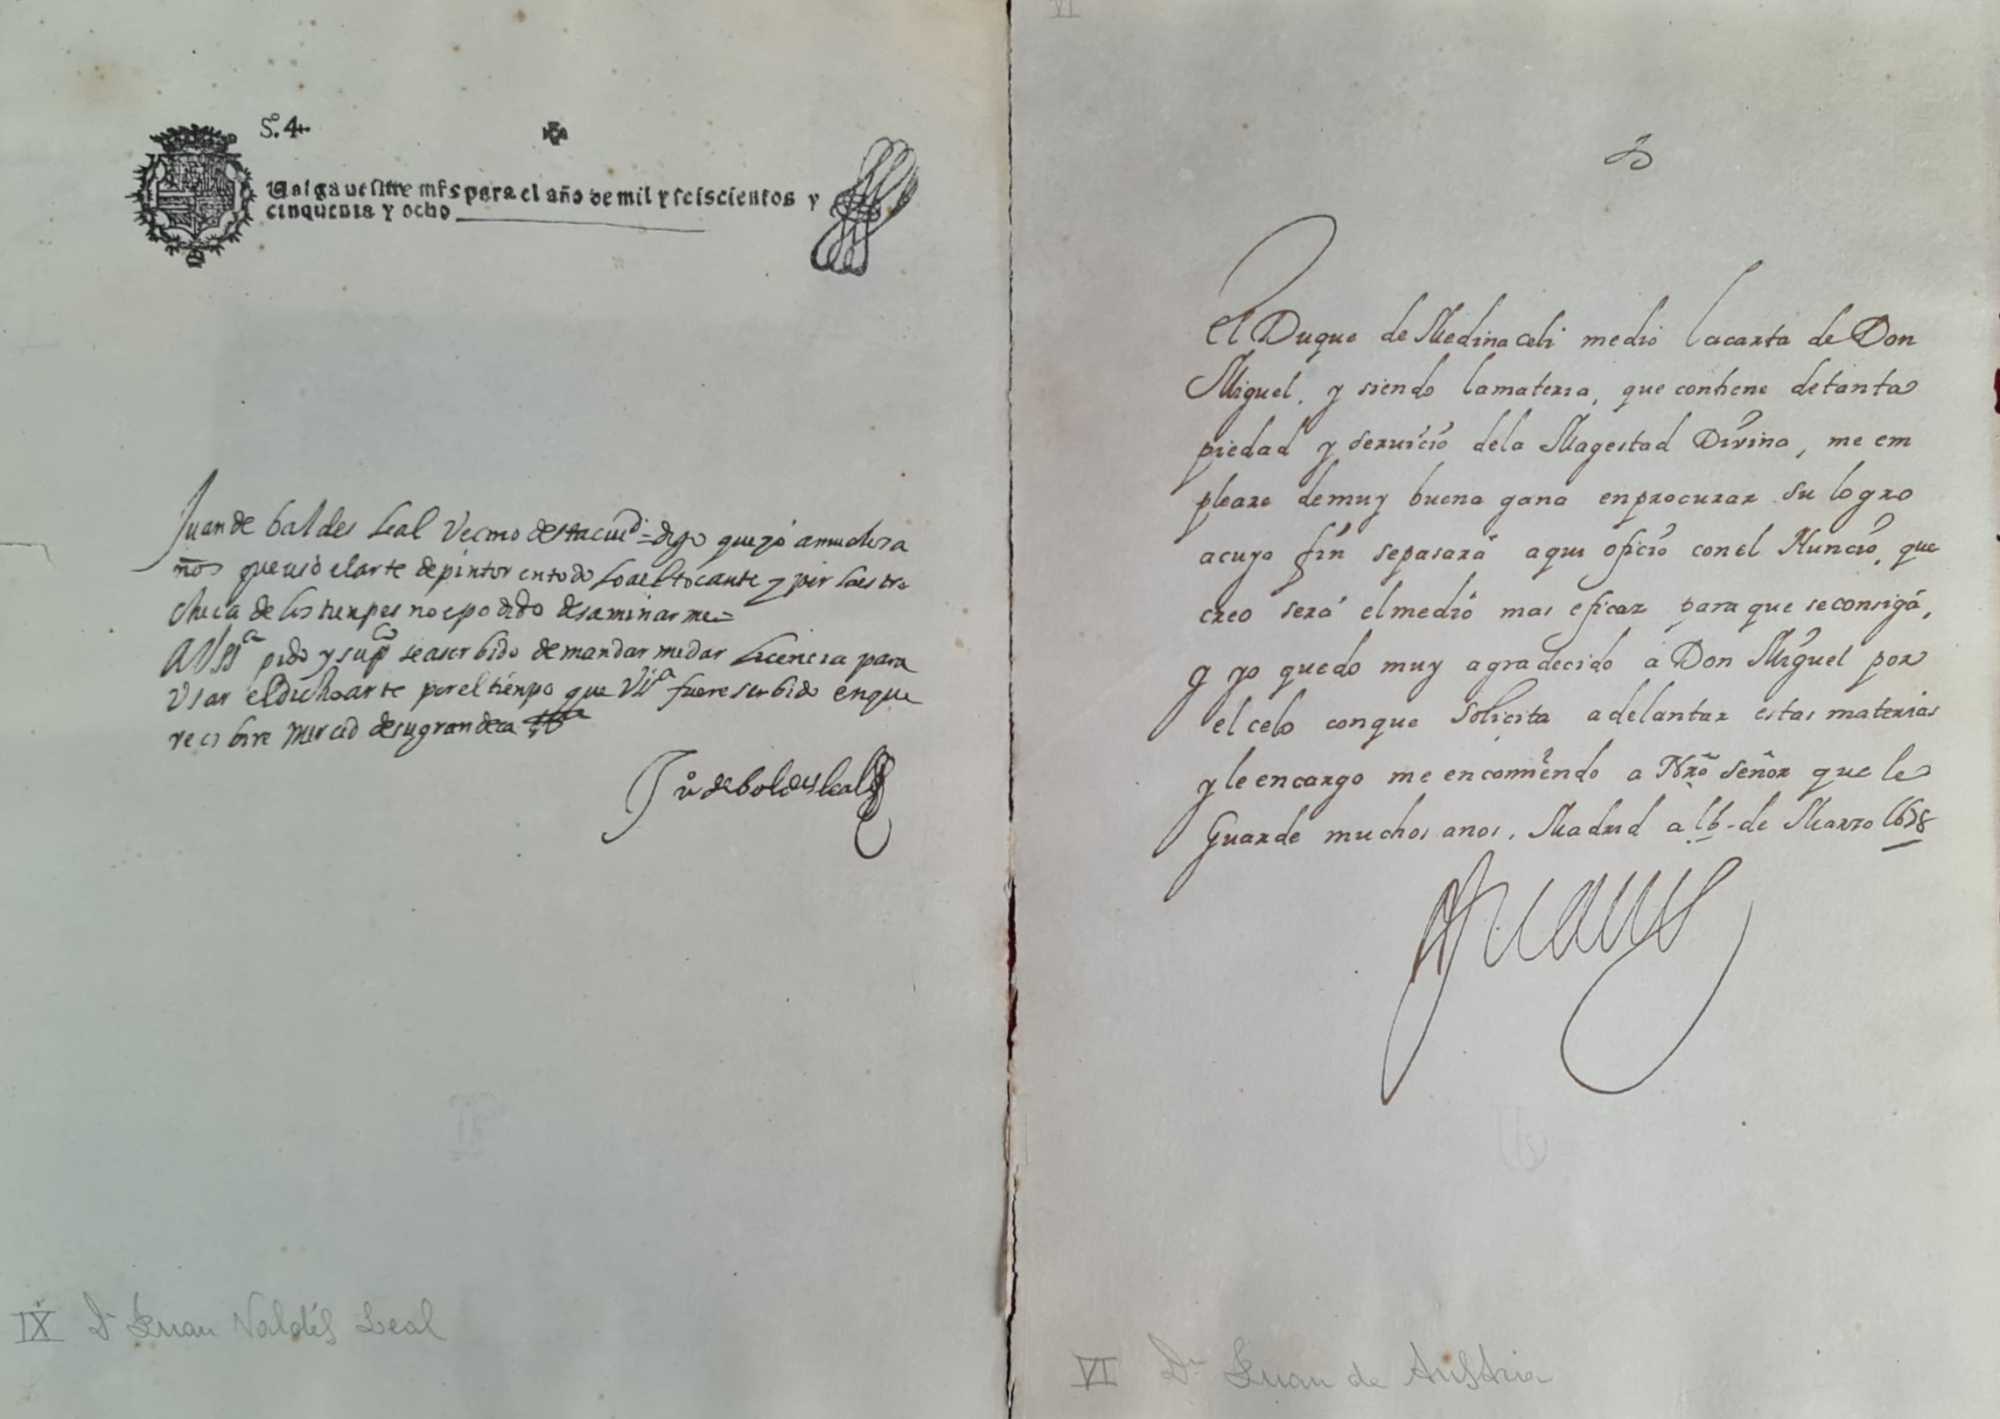 S.º 4
Valga veſinte mrs para el año de mil y ſeiscientos y
cinquenta y ocho
Juan de baldes leal vecino desta ciud.d digo que yo a muchos a
ños que uso el arte de pintor en todo lo a el tocante y por la estre
cheça de los tienpos no e podido desaminarme
A VSSª pido y supco sea serbido de mandarme dar licencia para
usar el dicho arte por el tienpo que VSª fuere serbido en que
recibire merced de su grandeça
Juº de baldes leal
IX Dn Juan Valdés Leal
VI
El Duque de Medina Celi me dio la carta de Don
Miguel, y siendo la materia, que contiene de tanta
piedad y seruicio de la Magestad Diuina, me em
pleare de muy buena gana en procurar su logro
a cuyo fin se pasará aqui oficio con el Nuncio, que
creo será el medio mas eficaz para que se consiga,
y yo quedo muy agradecido á Don Miguel por
el celo con que solicita adelantar estas materias
y le encargo me encomiendo a Nrõ señor que le
Guarde muchos anos, Madrid a 16 de Marzo 1678
D Juan
VI Dn Juan de Austria